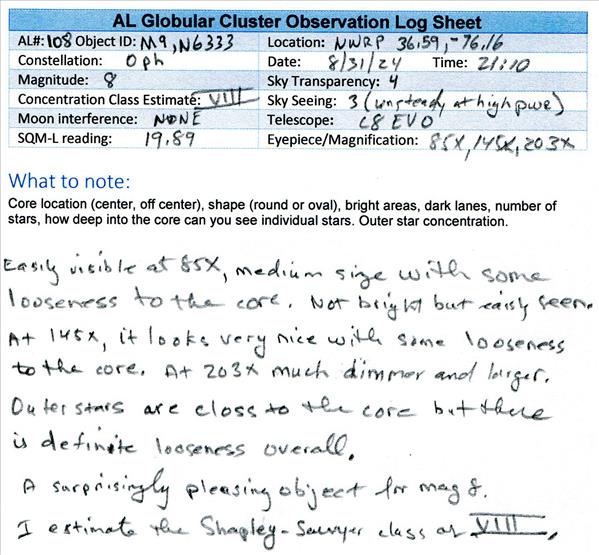 AL Globular Cluster Observation Log Sheet
AL#: 108 Object ID: M9, N6333 Location: NWRP 36.59, -76.16
Constellation: Oph Date: 8/31/24 Time: 21:10
Magnitude: 8 Sky Transparency: 4
Concentration Class Estimate: VIII Sky Seeing: 3 (unsteady at high pwr)
Moon interference: NONE Telescope: C8 EVO
SQM-L reading: 19.89 Eyepiece/Magnification: 85X, 145X, 203X
What to note:
Core location (center, off center), shape (round or oval), bright areas, dark lanes, number of
stars, how deep into the core can you see individual stars. Outer star concentration.
Easily visible at 85X, medium size with some
looseness to the core. Not bright but easily seen.
At 145X, it looks very nice with some looseness
to the core. At 203X much dimmer and larger.
Outer stars are closs to the core but there
is definite looseness overall.
A surprisingly pleasing object for mag 8.
I estimate the Shapley-Sawyer class at VIII.